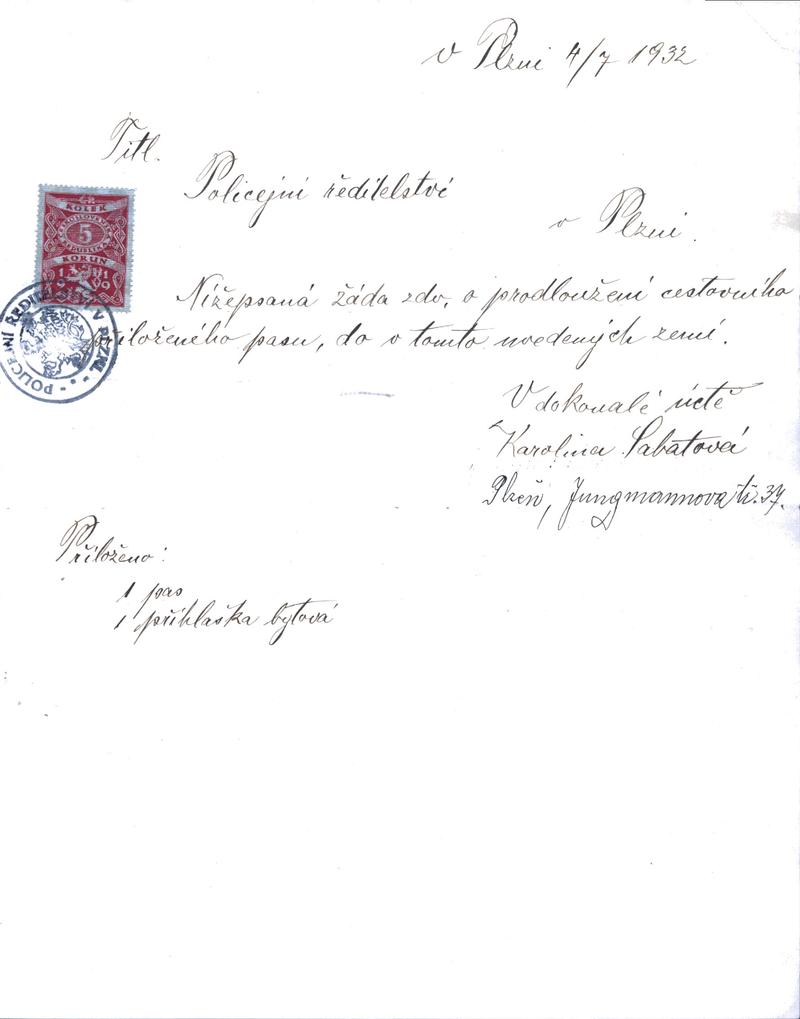 v Plzni 4/7 1932
Titl.
Policejní ředitelství
v Plzni.
KOLEK
5
KORUN
Nížepsaná žádá zdv. o prodloužení cestovního
přiloženého pasu, do v tomto uvedených zemí.
POLICEJNÍ ŘEDITELSTVÍ V PLZNI.
V dokonalé úctě
Karolina Sabatová
Plzeň, Jungmannova tř. 37.
Přiloženo:
1 pas
1 přihláška bytová